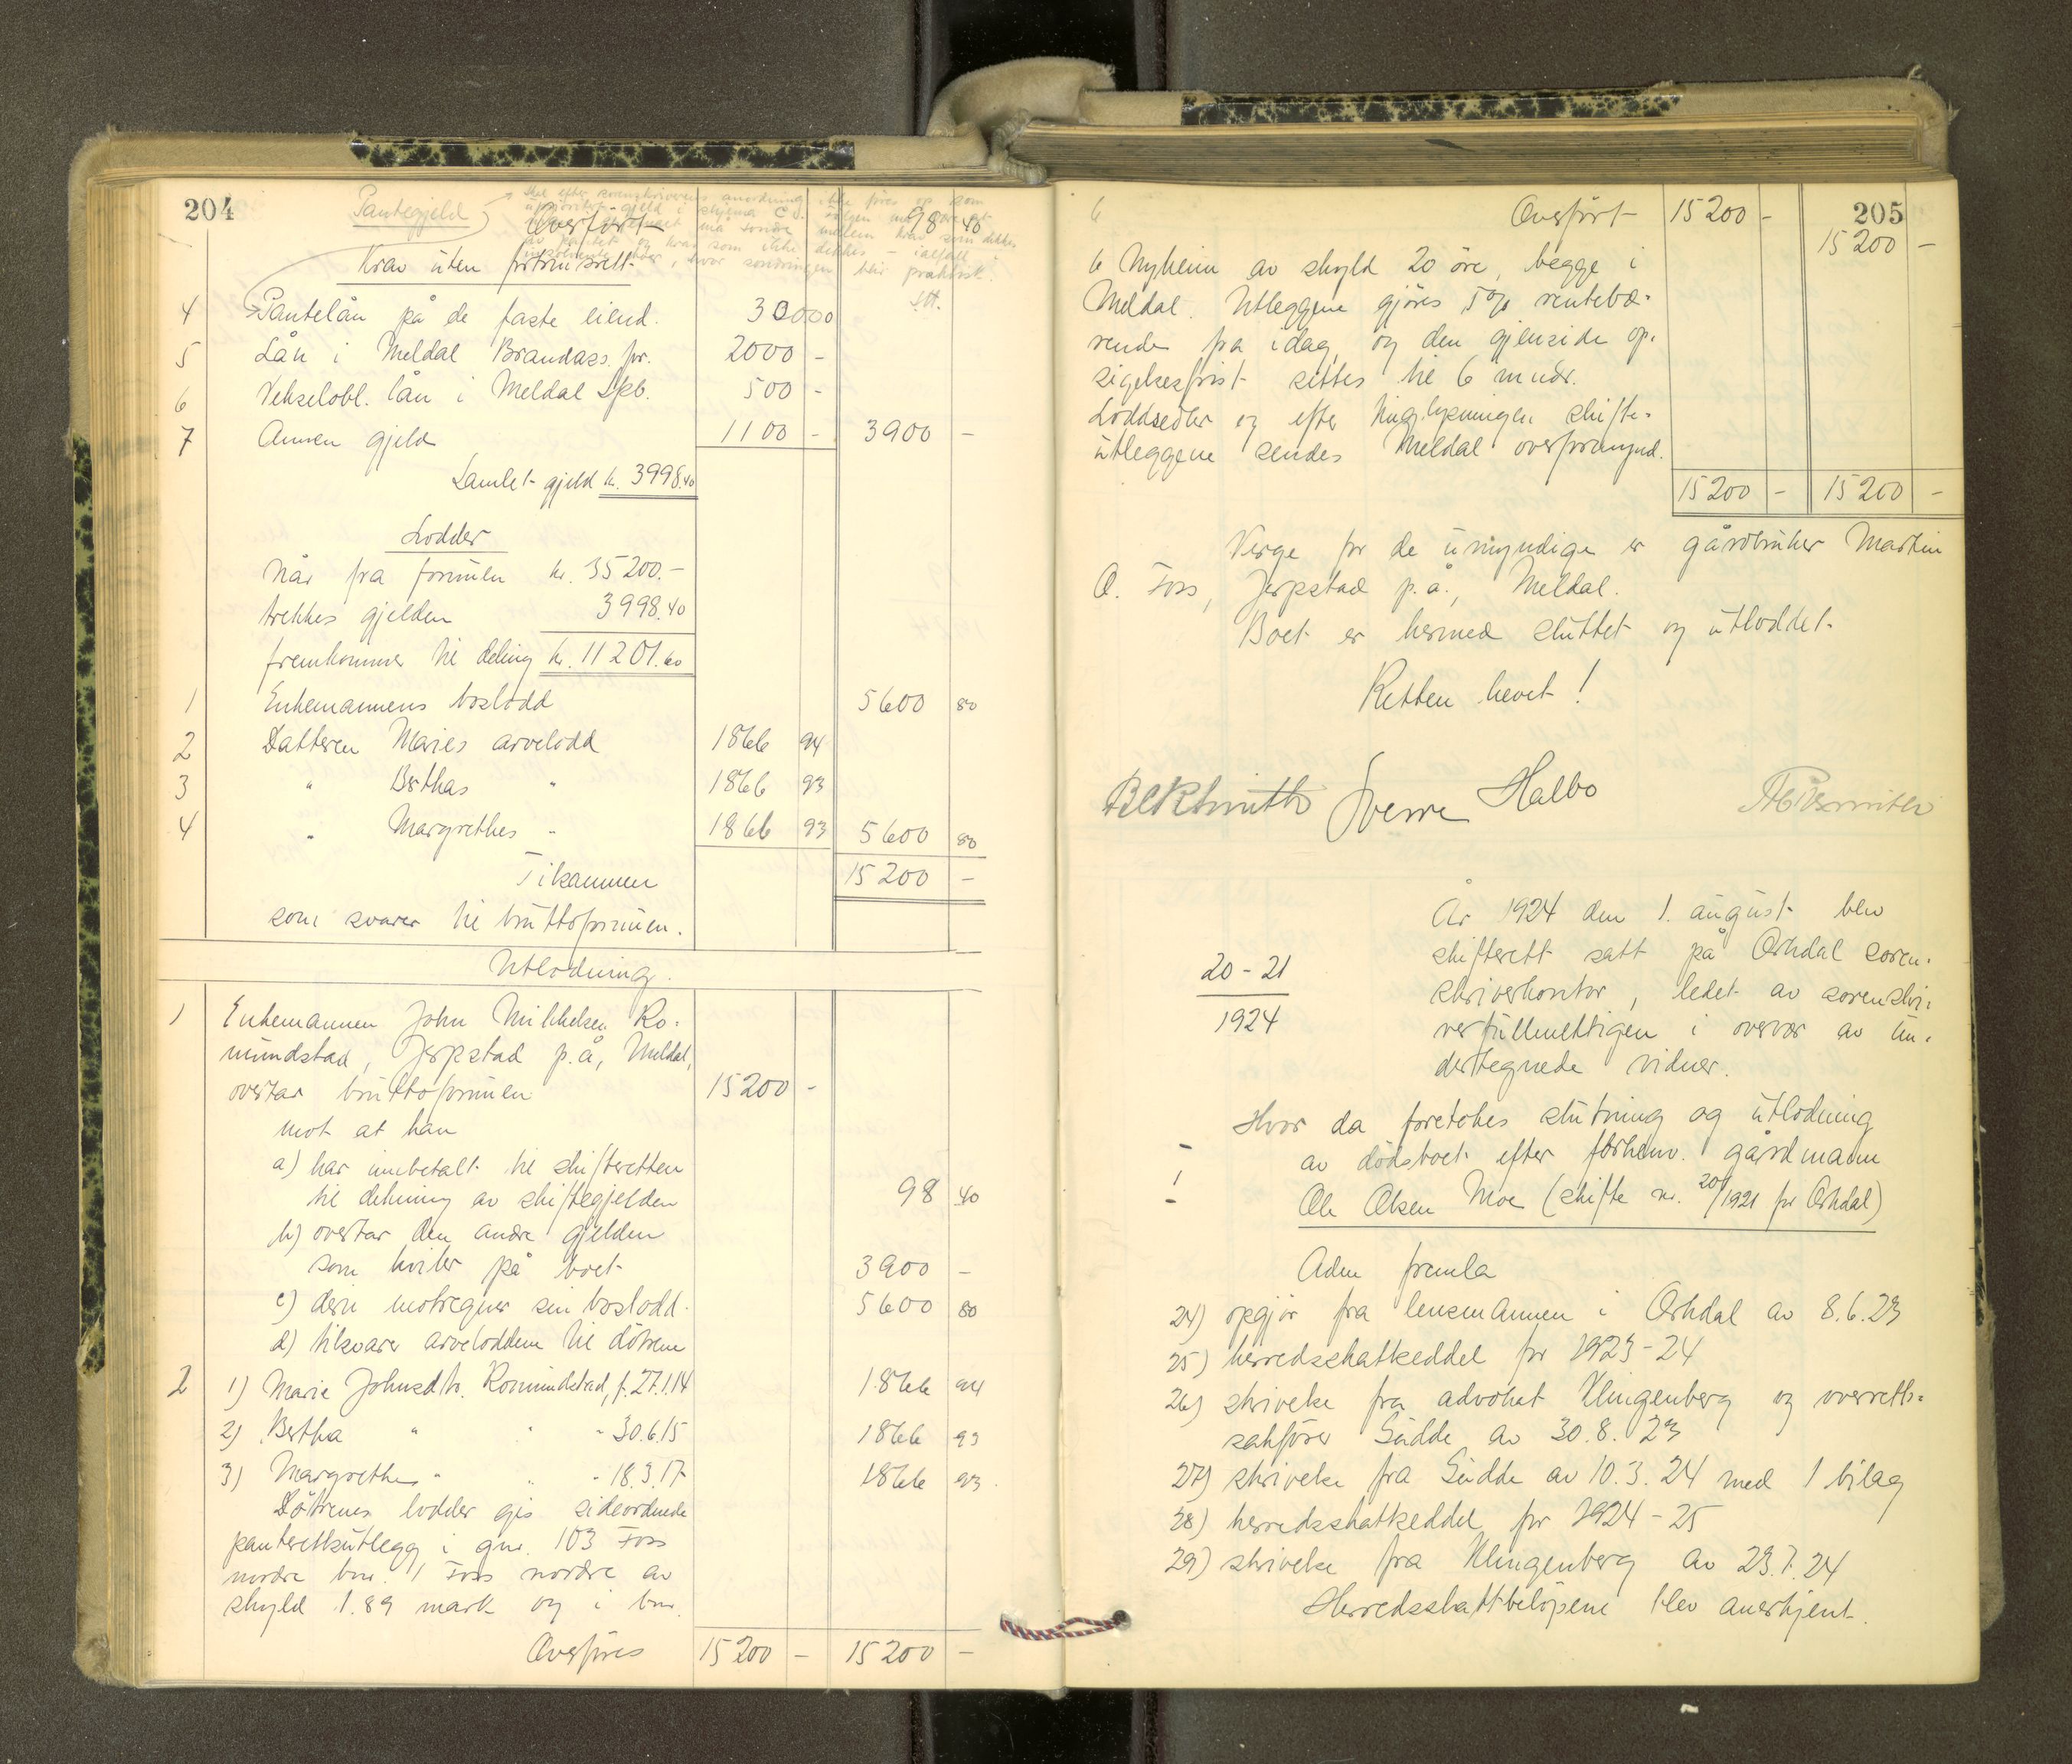 204
Pantegjeld
Skal efter sorenskriverens anordning ikke føres op som
uprioritert gjeld i skjema C.
må sondre mellem krav som dekkes
av pantet og krav som ikke dekkes – ialfall i
insolvente boer, hvor sondringen blir praktisk.
SH.
Overført 98 40
Krav uten fortrinsrett
4 Pantelån på de faste eiend. 30000
5 Lån i Meldal Brandass. for. 2000 -
6 Vekselobl. lån i Meldal Spb. 500 -
7 Annen gjeld 1100 - 3900 -
Samlet gjeld kr. 3998.40
Lodder
Når fra formuen kr. 35200.-
trekkes gjelden 3998.40
fremkommer til deling kr. 11201.60
1 Enkemannens boslodd 5600 80
2 Datteren Maries arvelodd 1866 94
3 " Berthas " 1866 93
4 " Margrethes " 1866 93 5600 80
Tilsammen 15200 -
som svarer til bruttoformuen.
Utlodning.
1 Enkemannen John Mikkelsen Ro-
mundstad, Jerpstad p.å, Meldal,
overtar bruttoformuen 15200 -
mot at han
a) har innbetalt til skifteretten
til dekning av skiftegjelden 98 40
b) overtar den andre gjelden
som hviler på boet 3900 -
c) deri motregner sin boslodd. 5600 80
d) tilsvarer arveloddene til døtrene
2 1) Marie Johnsdtr. Romundstad, f. 27.1.14 1866 94
2) Bertha " " - 30.6.15 1866 93
3) Margrethe " " - 18.3.17 1866 93
Døtrenes lodder gis sideordnede
panterettsutlegg i gnr. 103 Foss
nordre bnr. 1 Foss nordre av
skyld 1.89 mark og i bnr.
Overføres 15200 - 15200 -
205
6 Overført 15200 -
15200 -
6 Nyheim av skyld 20 øre, begge i
Meldal. Utleggene gjøres 5% rentebæ-
rende fra idag, og den gjensidige op-
sigelsesfrist settes til 6 mndr.
Loddsedler og efter tinglysningen skifte-
utleggene sendes Meldal overformynd.
15200 - 15200 -
Verge for de umyndige er gårdbruker Martin
O. Foss, Jerpstad p.å., Meldal.
Boet er hermed sluttet og utloddet.
Retten hevet!
Sverre Halbo
20-21
1924
År 1924 den 1. august blev
skifterett satt på Orkdal soren-
skriverkontor, ledet av sorenskri-
verfullmektigen i overvær av un-
dertegnede vidner.
Hvor da foretokes slutning og utlodning
av dødsboet efter forhenv. gårdmann
Ole Olsen Moe (skifte nr. 20/1921 for Orkdal)
Adm fremla
24) opgjør fra lensmannen i Orkdal av 8.6.23
25) herredsskatteseddel for 1923-24
26) skrivelse fra advokat Klingenberg og overretts-
sakfører Gudde av 30.8.23
27) skrivelse fra Gudde av 10.3.24 med 1 bilag
28) herredsskatteseddel for 1924-25
29) skrivelse fra Klingenberg av 23.7.24
Herredsskattbeløpene blev anerkjent.